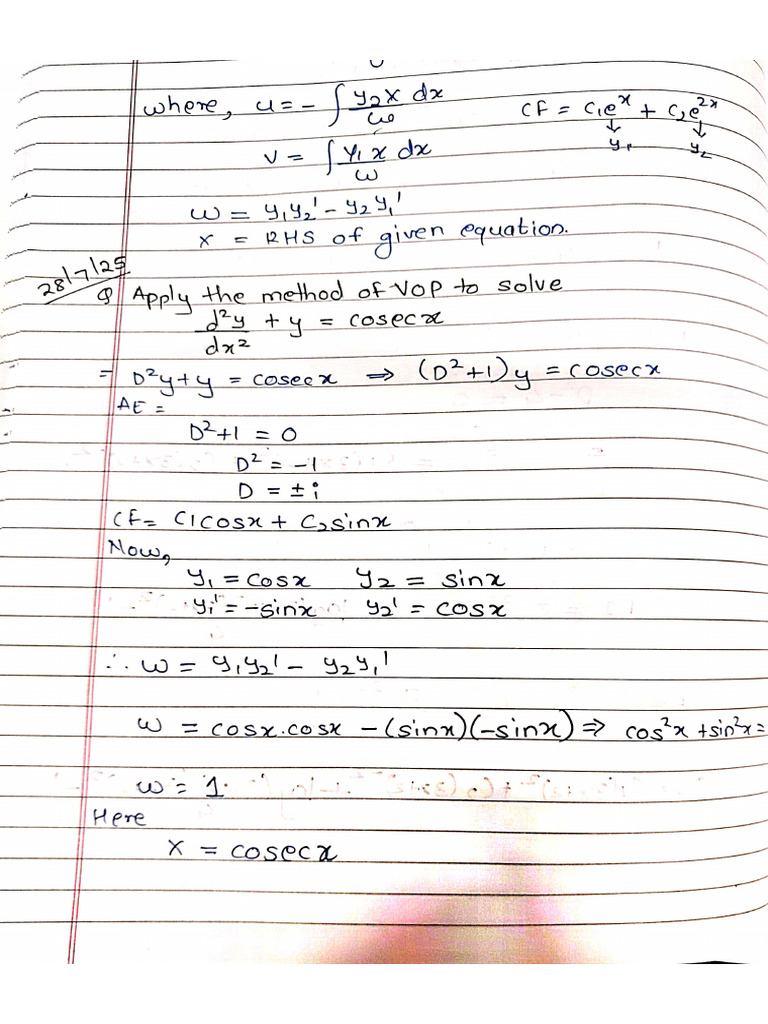 where, u = - ∫ y₂x dx / ω
CF = c₁eˣ + c₂e²ˣ
↓ ↓
y₁ y₂
v = ∫ y₁ x dx / ω
ω = y₁y₂' - y₂y₁'
x = RHS of given equation.
28/7/25
Q Apply the method of VOP to solve
d²y/dx² + y = cosecx
= D²y + y = cosecx ⇒ (D²+1)y = cosecx
AE =
D²+1 = 0
D² = -1
D = ± i
CF = C1cosx + C2sinx
Now,
y₁ = cosx y₂ = sinx
y₁' = -sinx y₂' = cosx
∴ ω = y₁y₂' - y₂y₁'
ω = cosx.cosx - (sinx)(-sinx) ⇒ cos²x + sin²x =
ω = 1.
Here
x = cosecx